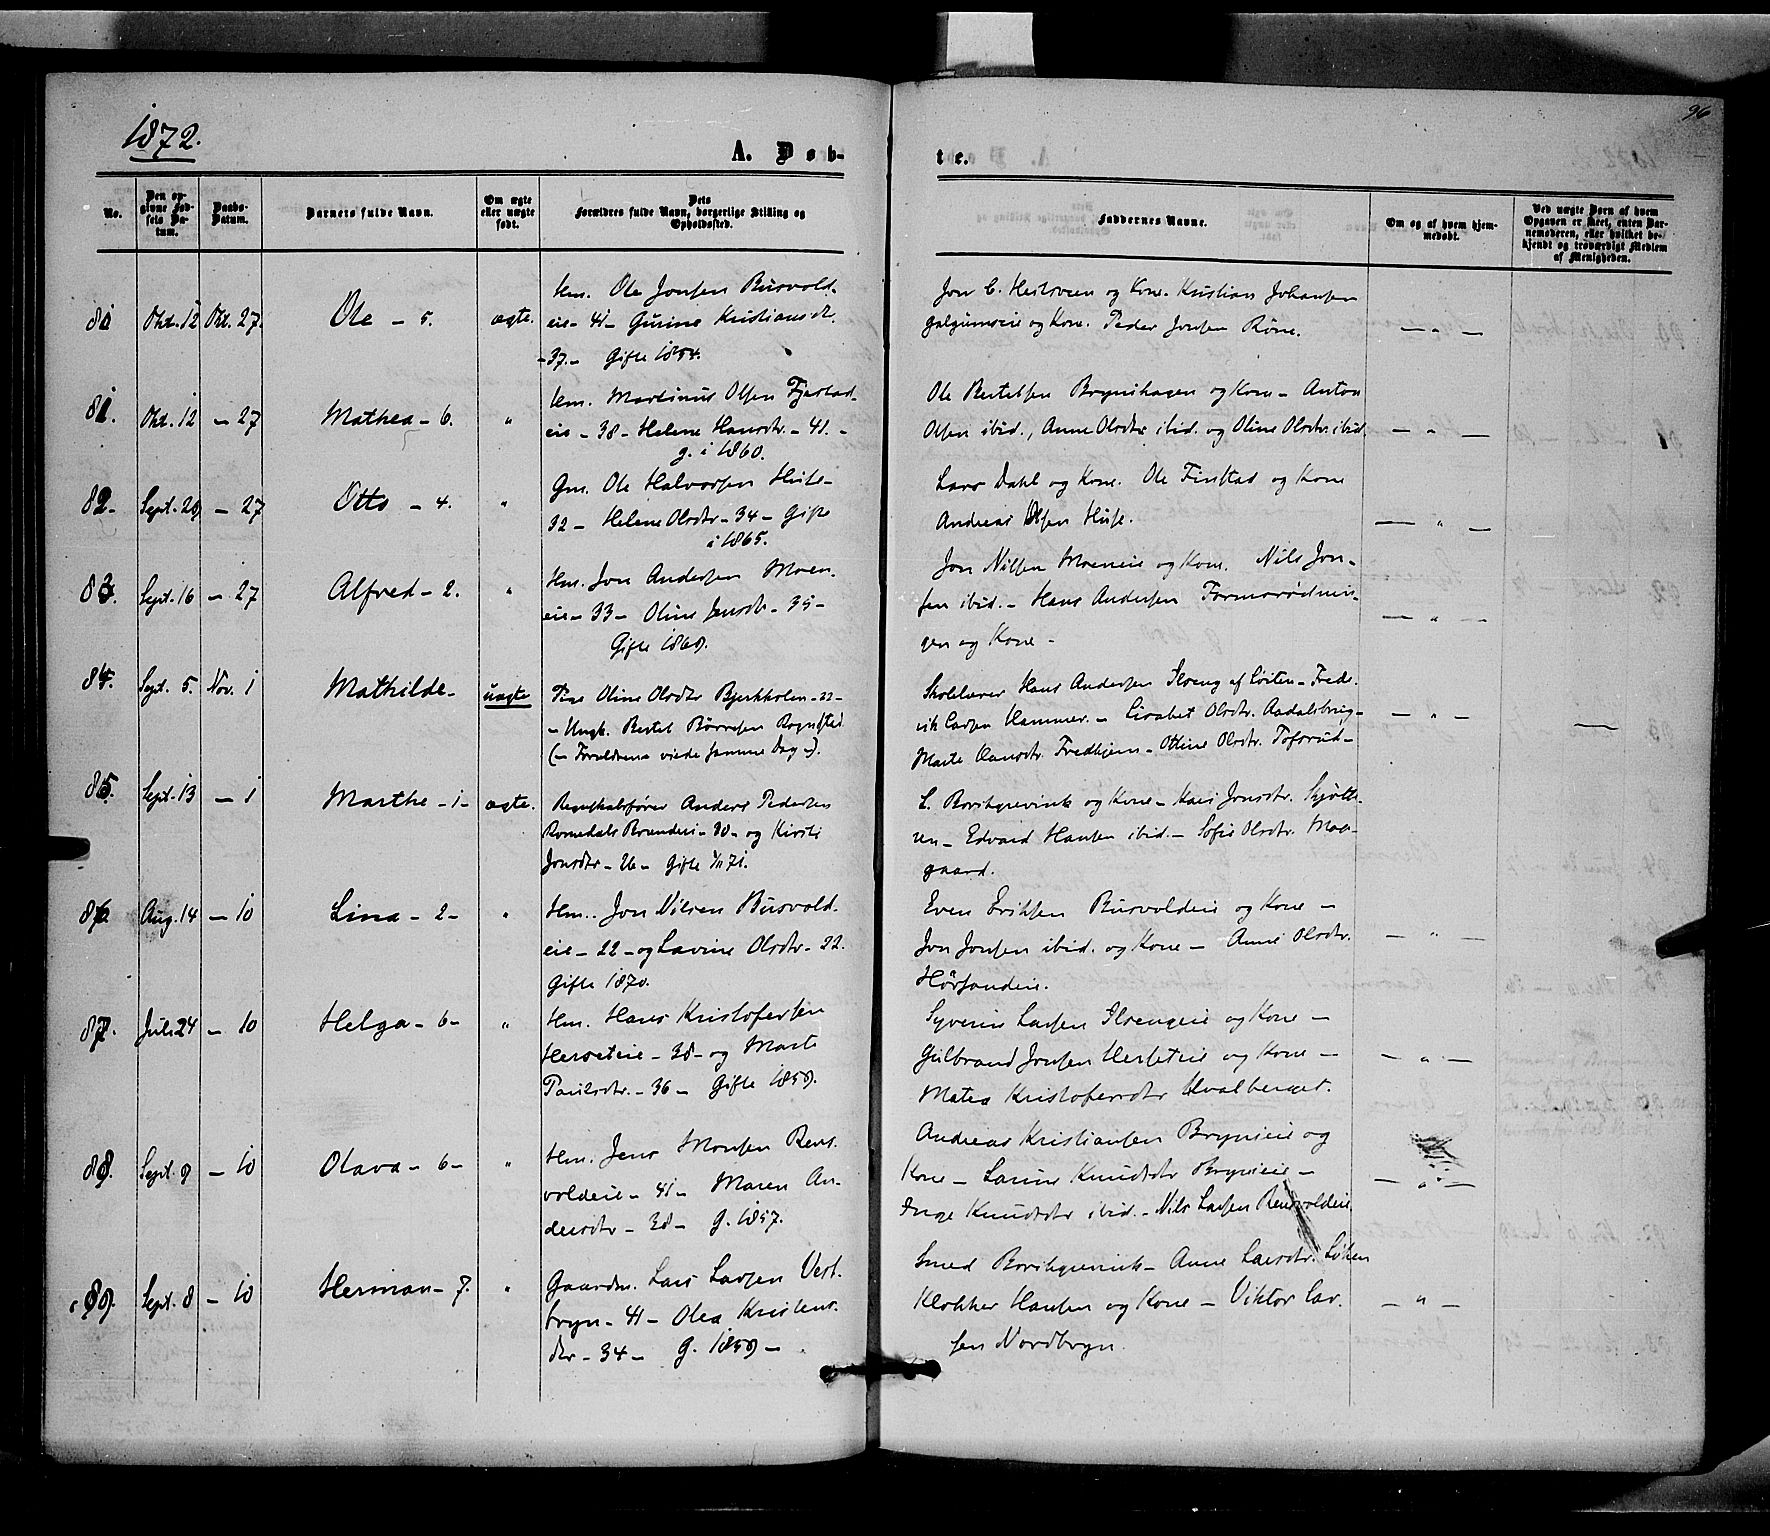 1872.
96
A. Døb-
te.
No.
Den op-
givne Fød-
sels Da-
tum.
Daabs-
Datum.
Barnets fulde Navn.
Om ægte
eller uægte
født.
Dets
Forældres fulde Navn, borgerlige Stilling og
Opholdssted.
Faddernes Navne.
Om og af hvem hjem-
medøbt.
Ved uægte Børn af hvem
Opgaven er skeet, enten Bar-
nemoderen, eller hvilket be-
kjendt og troværdigt Medlem
af Menigheden.
Okt. 12 Okt. 27. Ole - 5. ægte.
Hm. Ole Jonsen Busvold-
eie - 41 - Gurine Kristiansdt.
- 37. - Gifte 1854.
Jon C. og Kone. Kristian Johansen
og Kone. Peder Jonsen Røne.
- " -
81. Okt. 12 - 27 Mathea - 6. "
Hm. Martinus Olsen Fjestad-
eie - 38 - Helene Hansdtr. - 41. -
g. i 1860.
Ole Bertelsen Brynihagen og Kone - Anton
Olsen ibid., Anne Olsdtr. ibid. og Oline Olsdtr. ibid.
- " -
82 - Sept. 29 - 27 Otto - 4. "
Gm. Ole Halvorsen Huse -
32 - Helene Olsdtr - 34 - Gifte
i 1865.
Lars Dahl og Kone. Ole Finstad og Kone
Andreas Olsen Huse.
- " -
83. Sept. 16 - 27 Alfred - 2. "
Hm. Jon Andersen Moen-
eie - 33 - Oline Jensdtr - 35 -
Gifte 1869.
Jon Nilsen Moeneie og Kone. Nils Jon-
sen ibid. - Hans Andersen
gen og Kone -
- " -
84. Sept. 5. Nov. 1 Mathilde - uægte
Pige Oline Olsdtr Bjerkholen - 22 -
- Ungk. Bertel Børresen Rognsted
(- Forældrene viede samme Dag -).
Skolelærer Hans Andersen Ilseng af Løiten - Frede-
rik Larsen Hammer. - Lisabet Olsdtr. Aadalsbrug -
Marte Fredhjem - Otline Olsdtr. Tofsrud -
- " -
85. Sept. 13 - 1 Marthe - 1 - ægte.
Regnskabsfører Anders Pedersen
Romedals Brænderi - 30 - og Kirsti
Jonsdtr - 26 - Gifte 71.
L. Borchgrevink og Kone - Kari Jonsdtr.
en - Edvard Hansen ibid. - Sofie Olsdtr. Maa-
gaard.
86 Aug. 14 - 10 Lina - 2 - "
Hm. Jon Nilsen Busvold-
eie - 22 - og Lavine Olsdtr - 22.
Gifte 1870.
Even Eriksen Busvoldeie og Kone -
Jon Jonsen ibid. og Kone - Anne Olsdtr.
Hørsandeie.
- " -
87. Juli 24 - 10 Helga - 6 - "
Hm. Hans Kristofersen
Herseteie - 38 - og Marte
Paulsdtr. - 36 - Gifte 1859.
Syverin Larsen Ilsengeie og Kone -
Gulbrand Jonsen Herseteie og Kone -
Matea Kristofersdtr Hvalberget.
- " -
88. Sept. 9 - 10 Olava - 6 - "
Hm. Jens Monsen Rens-
voldeie - 41 - Maren An-
dersdtr - 38 - g. 1857.
Andreas Kristiansen Brynieie og
Kone - Larine Knudsdtr Brynieie -
Inge Knudsdtr ibid. - Nils Larsen Rensvoldeie.
- " -
89. Sept. 8 - 10 Herman - 7. "
Gaardm. Lars Larsen Vest-
bryn - 41 - Olea Kristens-
dtr - 34 - g. 1859 -
Smed Borchgrevink - Anne Larsdtr. Løken
Klokker Hansen og Kone - Viktor Lar-
sen Nordbryn.
- " -